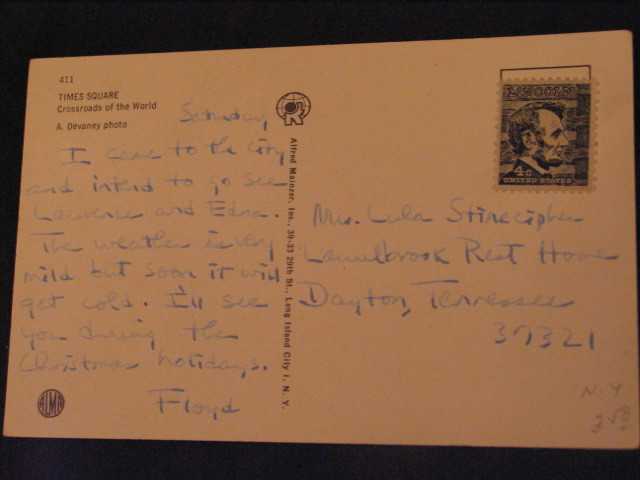 411
TIMES SQUARE
Crossroads of the World
A. Devaney photo
Saturday
I came to the City
and intend to go see
Lawrence and Edna.
The weather is very
mild but soon it will
get cold. I'll see
you during the
Christmas holidays.
Floyd
ALMA
Alfred Mainzer, Inc., 39-33 29th St., Long Island City 1, N. Y.
LINCOLN
4c
UNITED STATES
Mrs. Lula Stinecipher
Laurelbrook Rest Home
Dayton, Tennessee
37321
N.Y